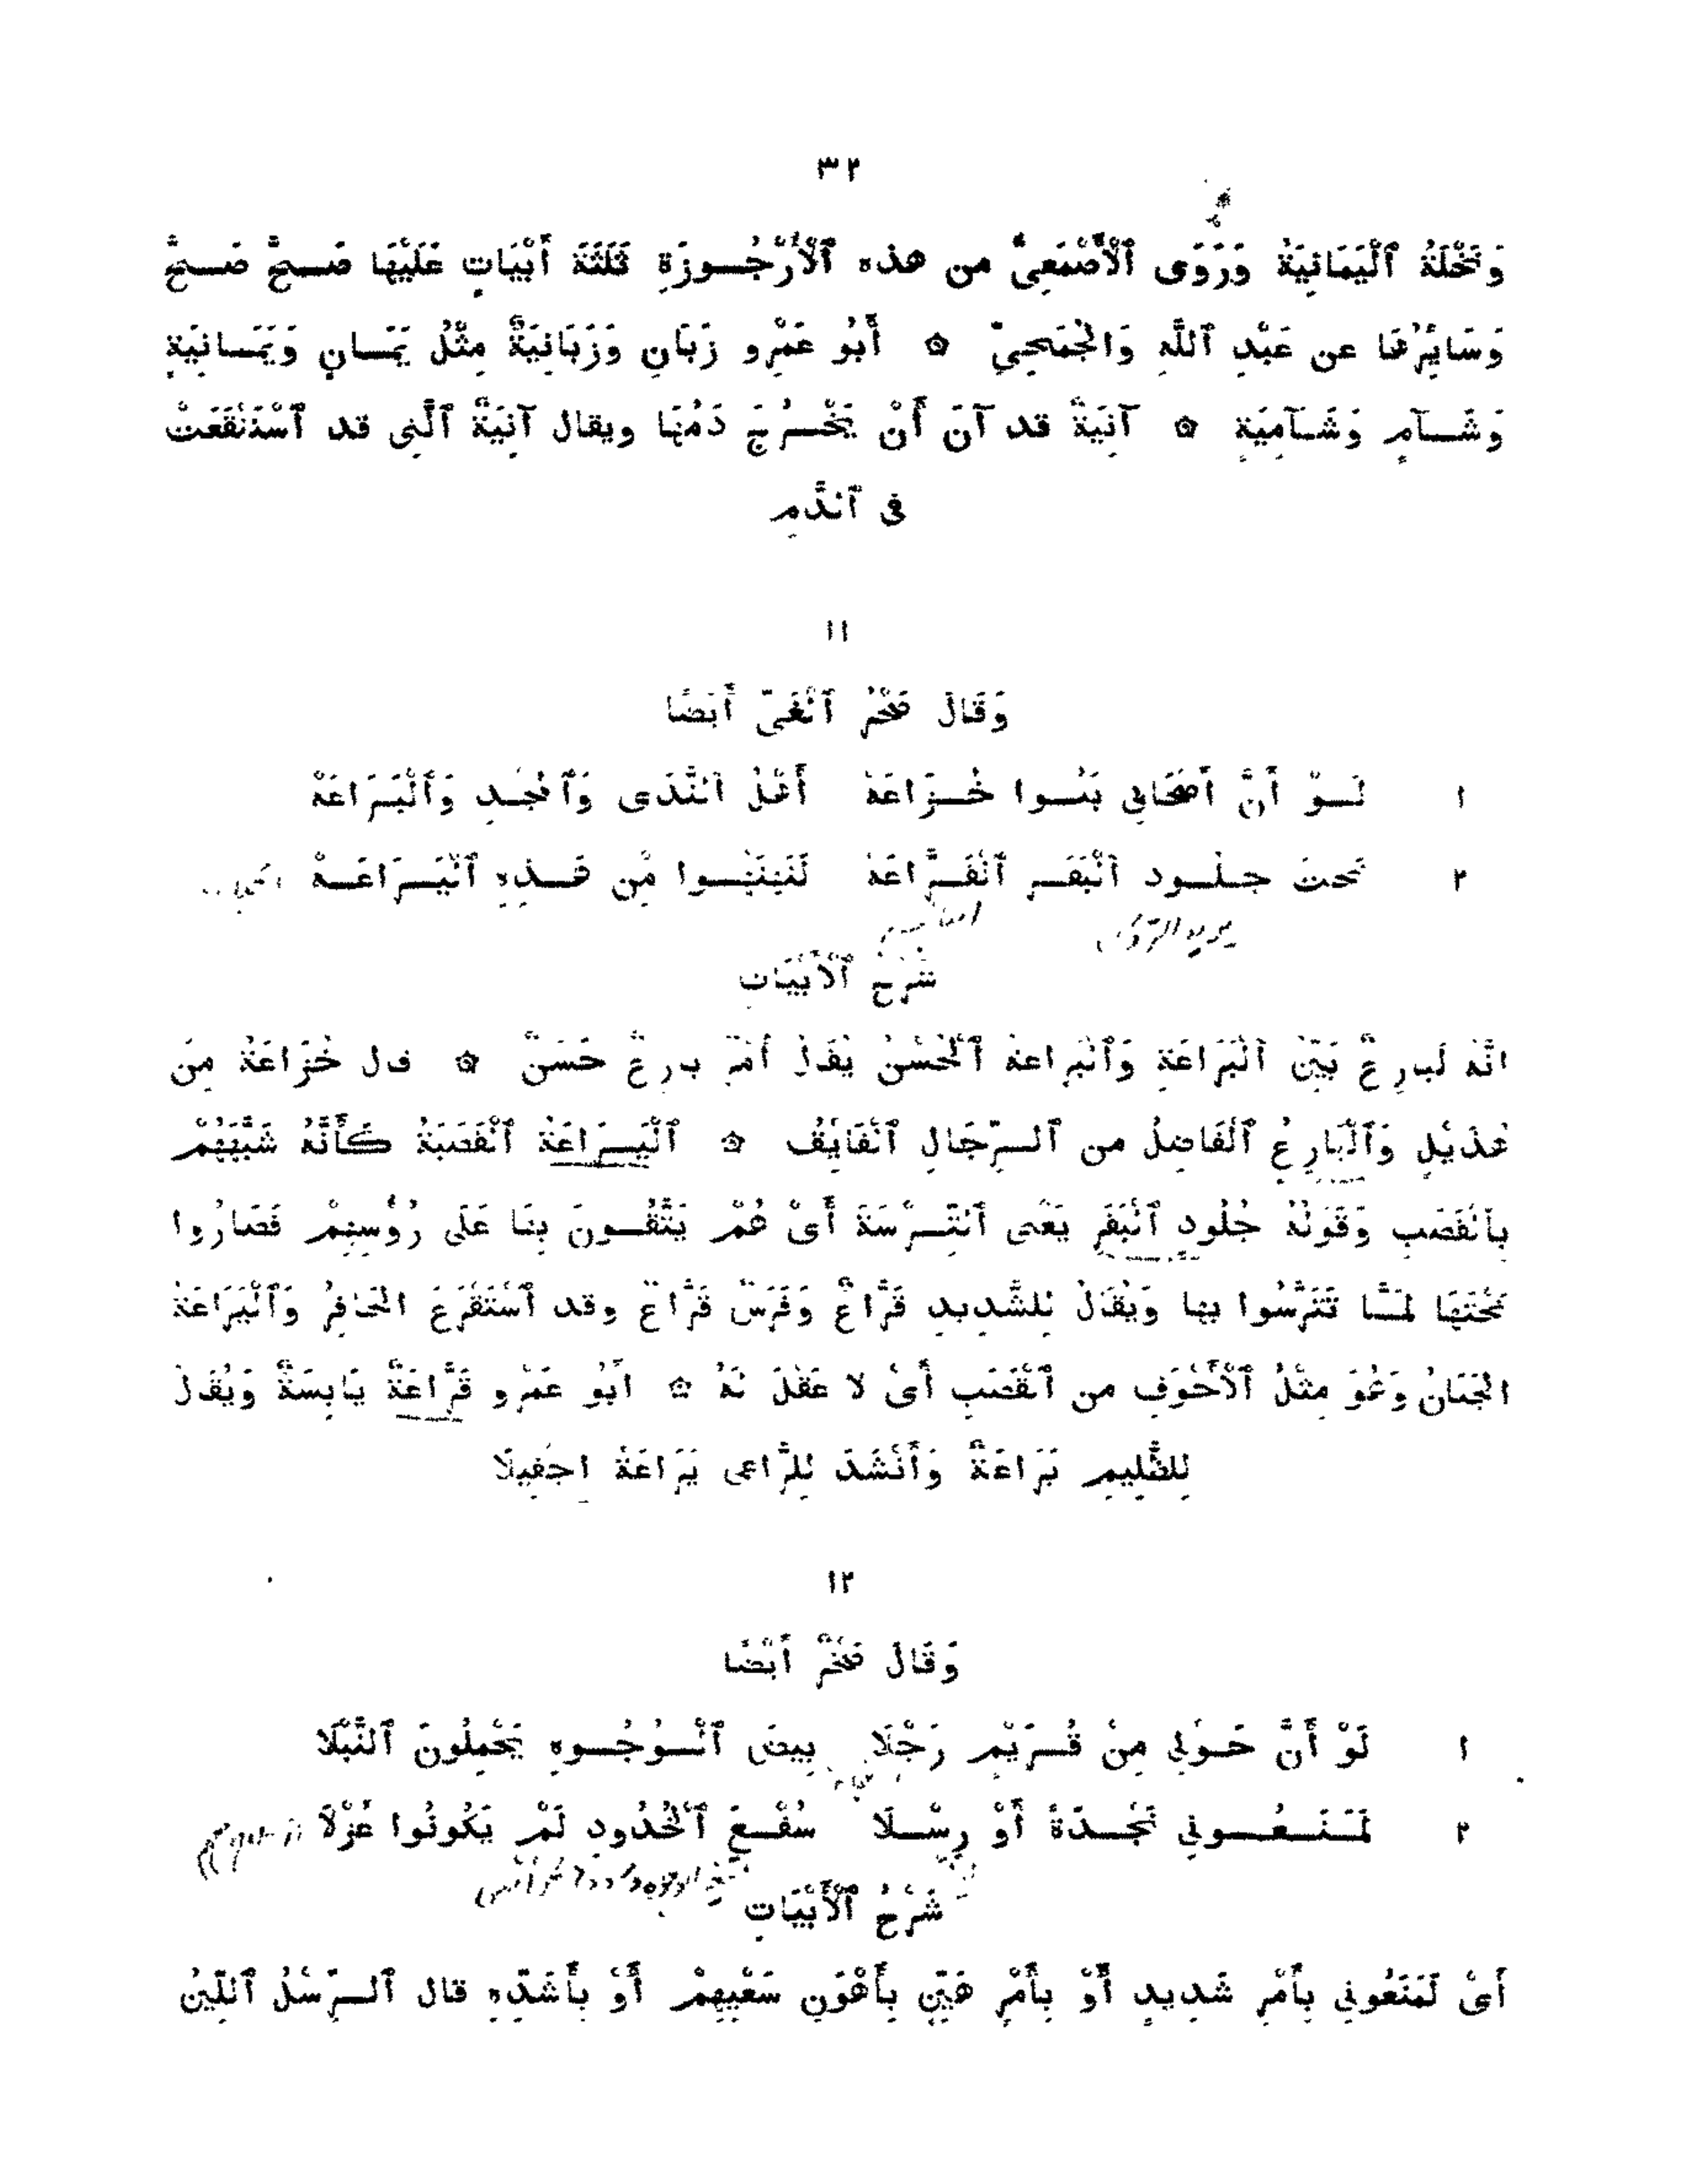 ٣٢
وَنَخْلَةُ ٱلْيَمَانِيَةُ وَرَوَى ٱلْأَصْمَعِىُّ من هذه ٱلْأُرْجُـــوزَةِ ثَلٰثَةَ أَبْيَاتٍ عَلَيْهَا صَــحَّ صَــحَّ
وَسَائِرُهَا عن عَبْدِ ٱللَّهِ وَالْجُمَحِىِّ ۞ أَبُو عَمْرٍو زَبَانٍ وَزَبَانِيَةٌ مِثْلُ يَمَــانٍ وَيَمَــانِيَةٍ
وَشَــآمٍ وَشَــآمِيَةٍ ۞ آنِيَةٌ قد آنَ أَنْ يَخْــرُجَ دَمُهَا ويقال آنِيَةٌ ٱلَّتِى قد ٱسْتَنْقَعَتْ
فى ٱلدَّمِ
١١
وَقَالَ صَخْرُ ٱلْغَىِّ أَيْضًا
١ لَــوْ أَنَّ أَصْحَابِى بَنُــوا خُــزَاعَهْ أَهْلُ ٱلنَّدَى وَٱلْمَجْــدِ وَٱلْبَــرَاعَهْ
٢ تحتَ جــلُــودِ ٱلْبَقَــرِ ٱلْقَــرَّاعَهْ لَنَهْنَهُــوا مِنْ هَــذِهِ ٱلْيَــرَاعَــهْ
شَرْحُ ٱلْأَبْيَاتِ
إنَّهُ لَبارِعٌ بَيِّنُ ٱلْبَرَاعَةِ وَٱلْبَرَاعَةُ ٱلْحُسْنُ يُقَالُ أَمْرٌ بارِعٌ حَسَنٌ ۞ قال خُزَاعَةُ مِنْ
هُذَيْلٍ وَٱلْبَارِعُ ٱلْفَاضِلُ من ٱلــرِّجَالِ ٱلْفَايِقُ ۞ ٱلْيَــرَاعَةُ ٱلْقَصَبَةُ كَأَنَّهُ شَبَّهَهُمْ
بِٱلْقَصَبِ وَقَوْلُهُ جُلُودِ ٱلْبَقَرِ يَعْنِى ٱلتِّــرَسَةَ أَىْ هُمْ يَتَّقُــونَ بِهَا عَلَى رُؤُسِهِمْ فَصَارُوا
تَحْتَهَا لَمَّــا تَتَرَّسُوا بها وَيُقَالُ لِلشَّدِيدِ قَرَّاعٌ وَفَرَسٌ قَرَّاعٌ وقد ٱسْتَقْرَعَ الْحَافِرُ وَٱلْيَرَاعَةُ
الْجَبَانُ وَهُوَ مِثْلُ ٱلْأَجْوَفِ من ٱلْقَصَبِ أَىْ لا عَقْلَ لَهُ ۞ أَبُو عَمْرٍو قَرَّاعَةٌ يَابِسَةٌ وَيُقَالُ
لِلظَّلِيمِ يَرَاعَةٌ وَأَنْشَدَ لِلرَّاعِى يَرَاعَةً إِجْفِيلَا
١٢
وَقَالَ صَخْرٌ أَيْضًا
١ لَوْ أَنَّ حَــوْلِى مِنْ قُــرَيْمٍ رَجْلَا بِيضَ ٱلْــوُجُــوهِ يَحْمِلُونَ ٱلنَّبْلَا
٢ لَمَــنَــعُــونِى نَجْــدَةً أَوْ رِسْــلَا سُفْــعَ ٱلْخُدُودِ لَمْ يَكُونُوا عُزْلَا
شَرْحُ ٱلْأَبْيَاتِ
أَىْ لَمَنَعُونِى بِأَمْرٍ شَدِيدٍ أَوْ بِأَمْرٍ هَيِّنٍ بِأَهْوَنِ سَعْيِهِمْ أَوْ بِأَشَدِّهِ قال ٱلــرِّسْلُ ٱللِّينُ